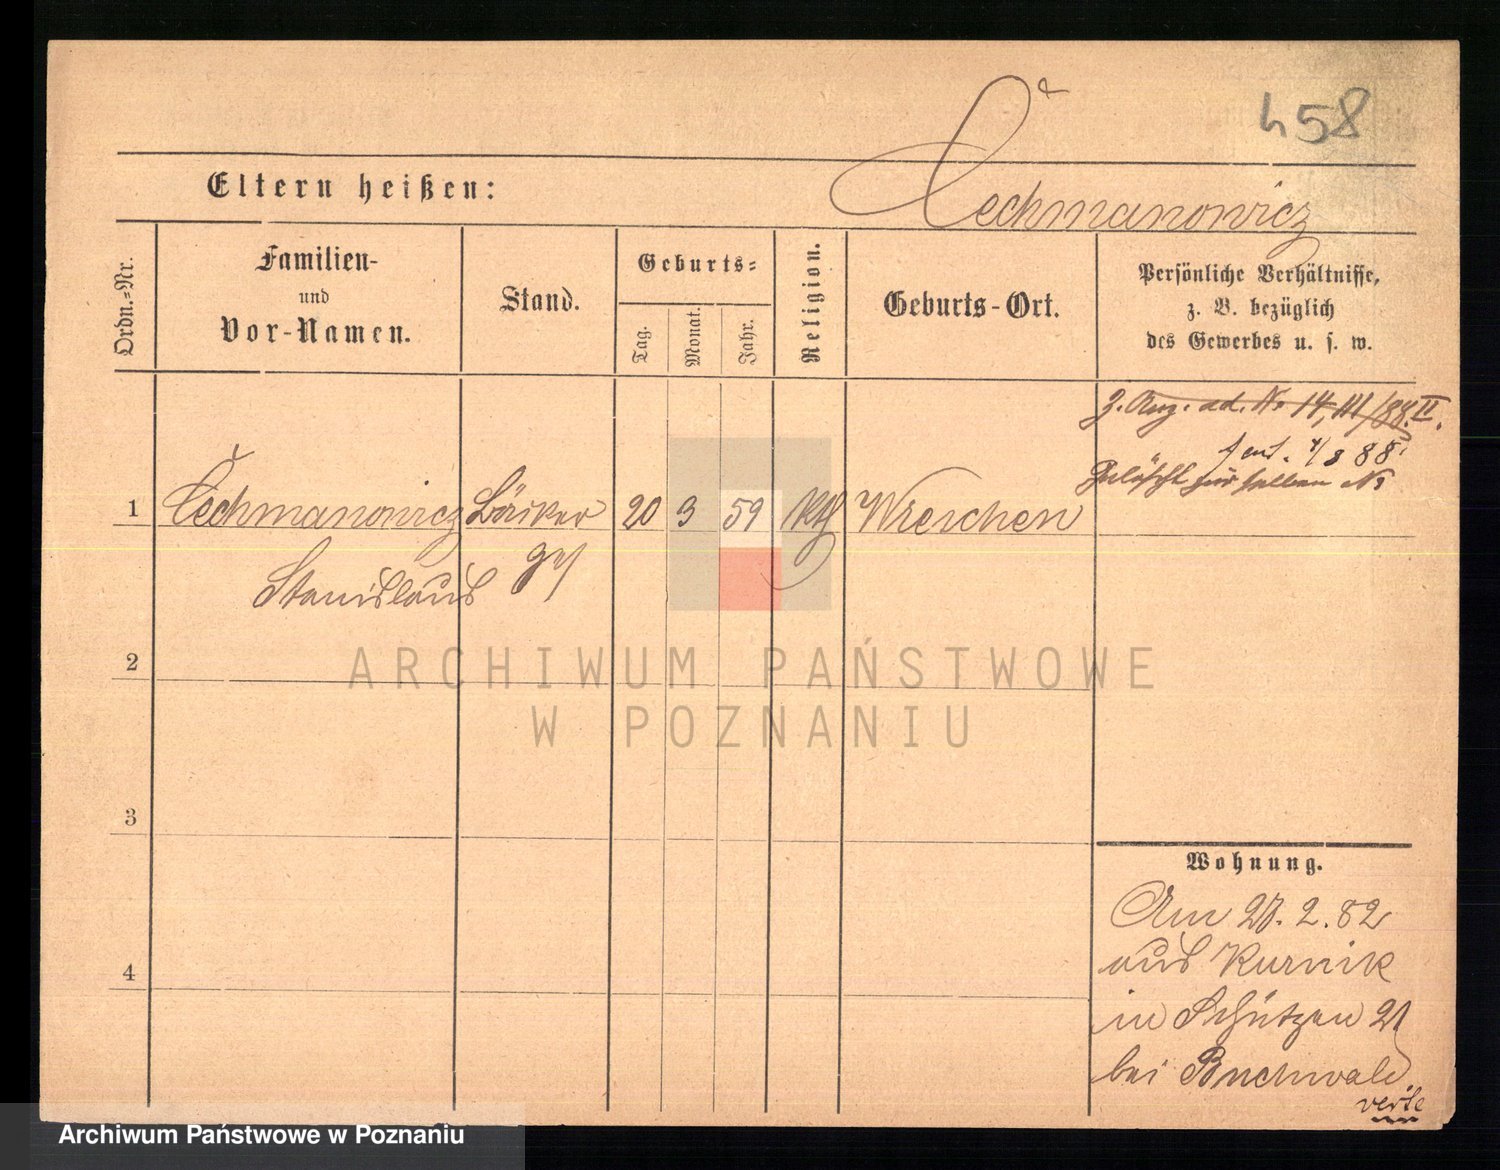 458
Čechmanowicz
Eltern heißen:
Ordn.-Nr.
Familien-
und
Vor-Namen.
Stand.
Geburts-
Tag.
Monat.
Jahr.
Religion.
Geburts-Ort.
Persönliche Verhältnisse,
z. B. bezüglich
des Gewerbes u. s. w.
ad. No 14, III/88. II.
88
No
1 Čechmanowicz Bäcker 20 3 59 kth Wreschen
Stanislaus ges
2
3
4
Wohnung.
Am 27. 2. 82
aus Kurnik
in Schützen 21
bei Buchwald
verte
ARCHIWUM PAŃSTWOWE
W POZNANIU
Archiwum Państwowe w Poznaniu